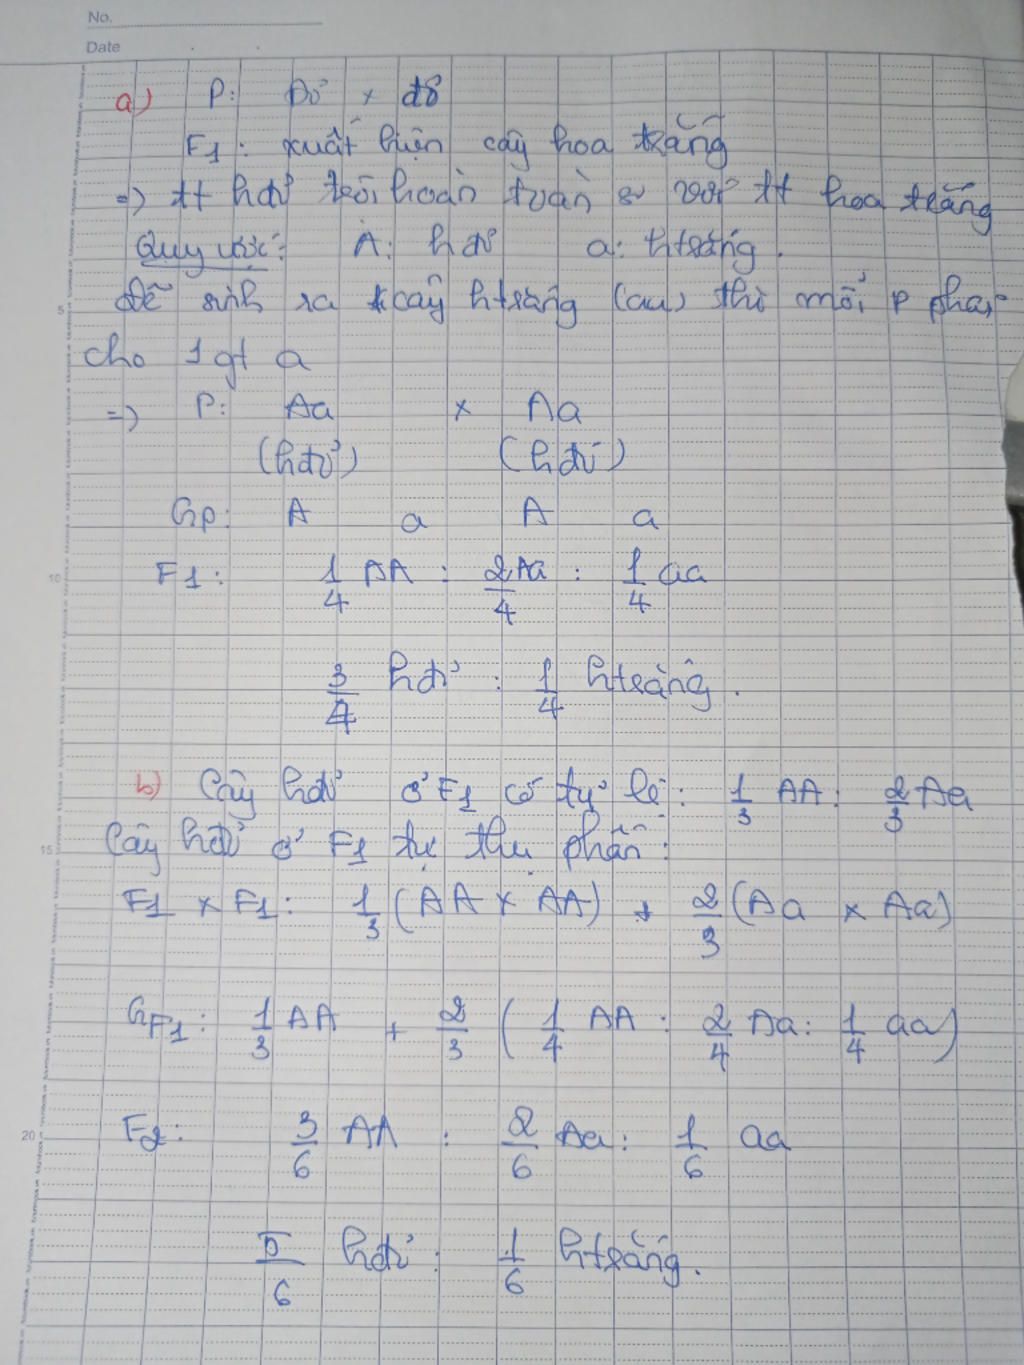 No.
Date
a) P: Đỏ x đỏ
F1: xuất hiện cây hoa trắng
=> tt hđỏ trội hoàn toàn so với tt hoa trắng
Quy ước: A: hđỏ a: htrắng.
5 Để sinh ra cây htrắng (aa) thì mỗi P phải
cho 1 gt a
=> P: Aa x Aa
(hđỏ) (hđỏ)
Gp: A a A a
10 F1: 1/4 AA : 2/4 Aa : 1/4 aa
3/4 hđỏ : 1/4 htrắng.
b) Cây hđỏ ở F1 có tỷ lệ: 1/3 AA : 2/3 Aa
15 Cây hđỏ ở F1 tự thụ phấn:
F1 x F1: 1/3 (AA x AA) + 2/3 (Aa x Aa)
GF1: 1/3 AA + 2/3 (1/4 AA : 2/4 Aa : 1/4 aa)
20 F2: 3/6 AA : 2/6 Aa : 1/6 aa
5/6 hđỏ : 1/6 htrắng.